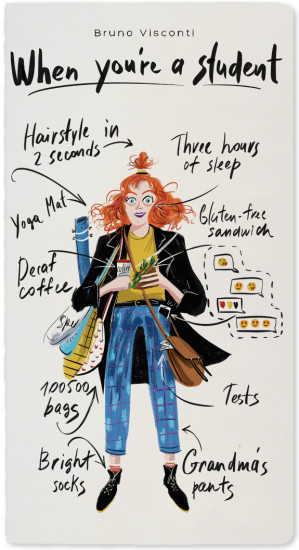 Bruno Visconti
When you're a student
Hairstyle in
2 seconds
Three hours
of sleep
Yoga Mat
Gluten-free
sandwich
Decaf
coffee
100500
bags
Tests
Bright
socks
Grandma's
pants